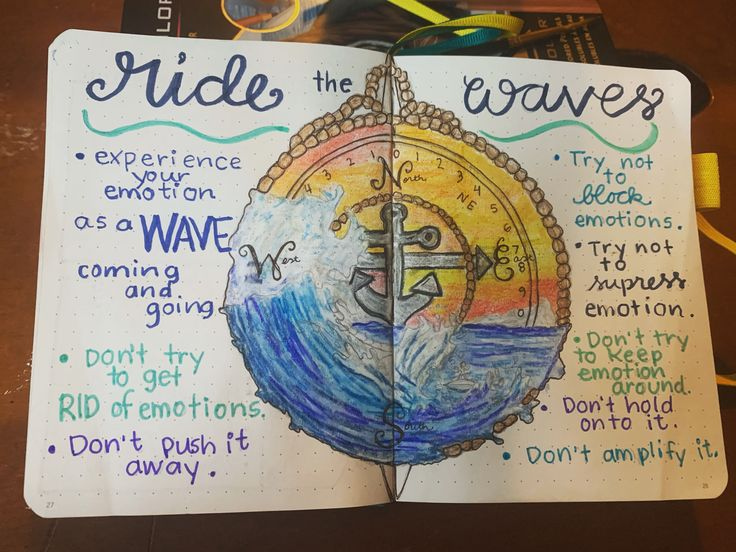 ride the waves
• experience
your
emotion
as a WAVE
coming
and
going
• Don't try
to get
RID of emotions.
• Don't push it
away.
27
• Try not
to
block
emotions.
• Try not
to
supress
emotion.
• Don't try
to keep
emotion
around.
• Don't hold
onto it.
• Don't amplify it.
North
NE
West
East
South
4 3 2 1 0 1 2 3 4 5 6 7 8 9 0
LOR